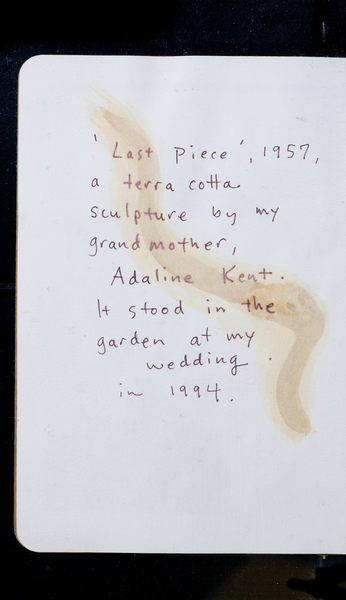 'Last piece', 1957,
a terra cotta
sculpture by my
grandmother,
Adaline Kent.
It stood in the
garden at my
wedding.
in 1994.